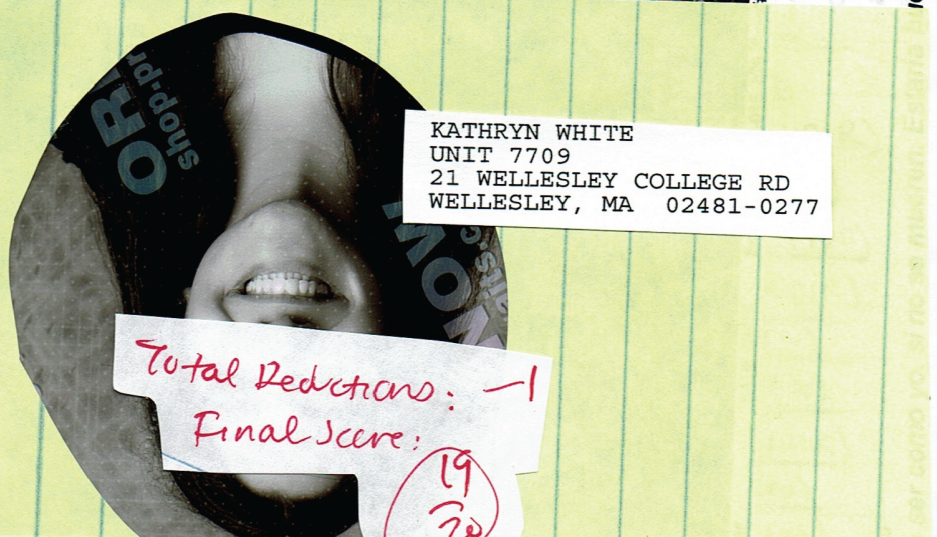 KATHRYN WHITE
UNIT 7709
21 WELLESLEY COLLEGE RD
WELLESLEY, MA 02481-0277
shop.pr
Total Deductions: -1
Final Score:
19
20